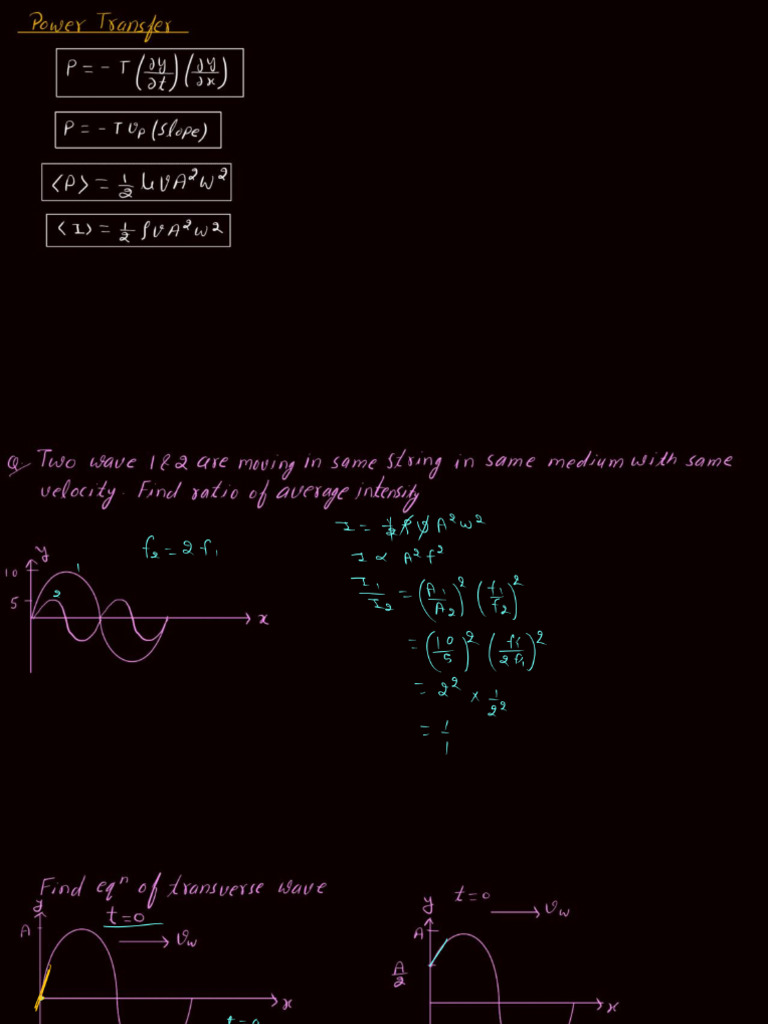 Power Transfer
P = - T (∂y/∂t) (∂y/∂x)
P = - T v_P (slope)
⟨P⟩ = 1/2 μ v A² w²
⟨I⟩ = 1/2 ρ v A² w²
Q Two wave 1 & 2 are moving in same string in same medium with same
velocity. Find ratio of average intensity
y
10
5
1
2
x
f₂ = 2 f₁
I = 1/2 ρ v A² w²
I ∝ A² f²
I₁/I₂ = (A₁/A₂)² (f₁/f₂)²
= (10/5)² (f₁/2f₁)²
= 2² × 1/2²
= 1/1
Find eqⁿ of transverse wave
y
t=0
A
v_w
x
t=0
y
t=0
v_w
A
A/2
x